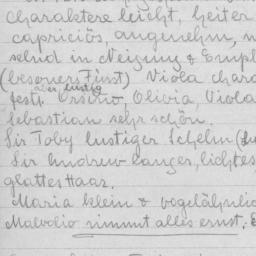 Charaktere leicht, heiter
capriciös, angenehm,
selnd in Neigung &
(besoners Fürst) Viola
aber lustig
fest. Orsino Olivia, Viola
Sebastian sehr schön.
Sir Toby lustiger Schelm
Sir Andrew langer, lichtes
glattes Haar.
Maria klein &
Malvolio nimmt alles ernst.